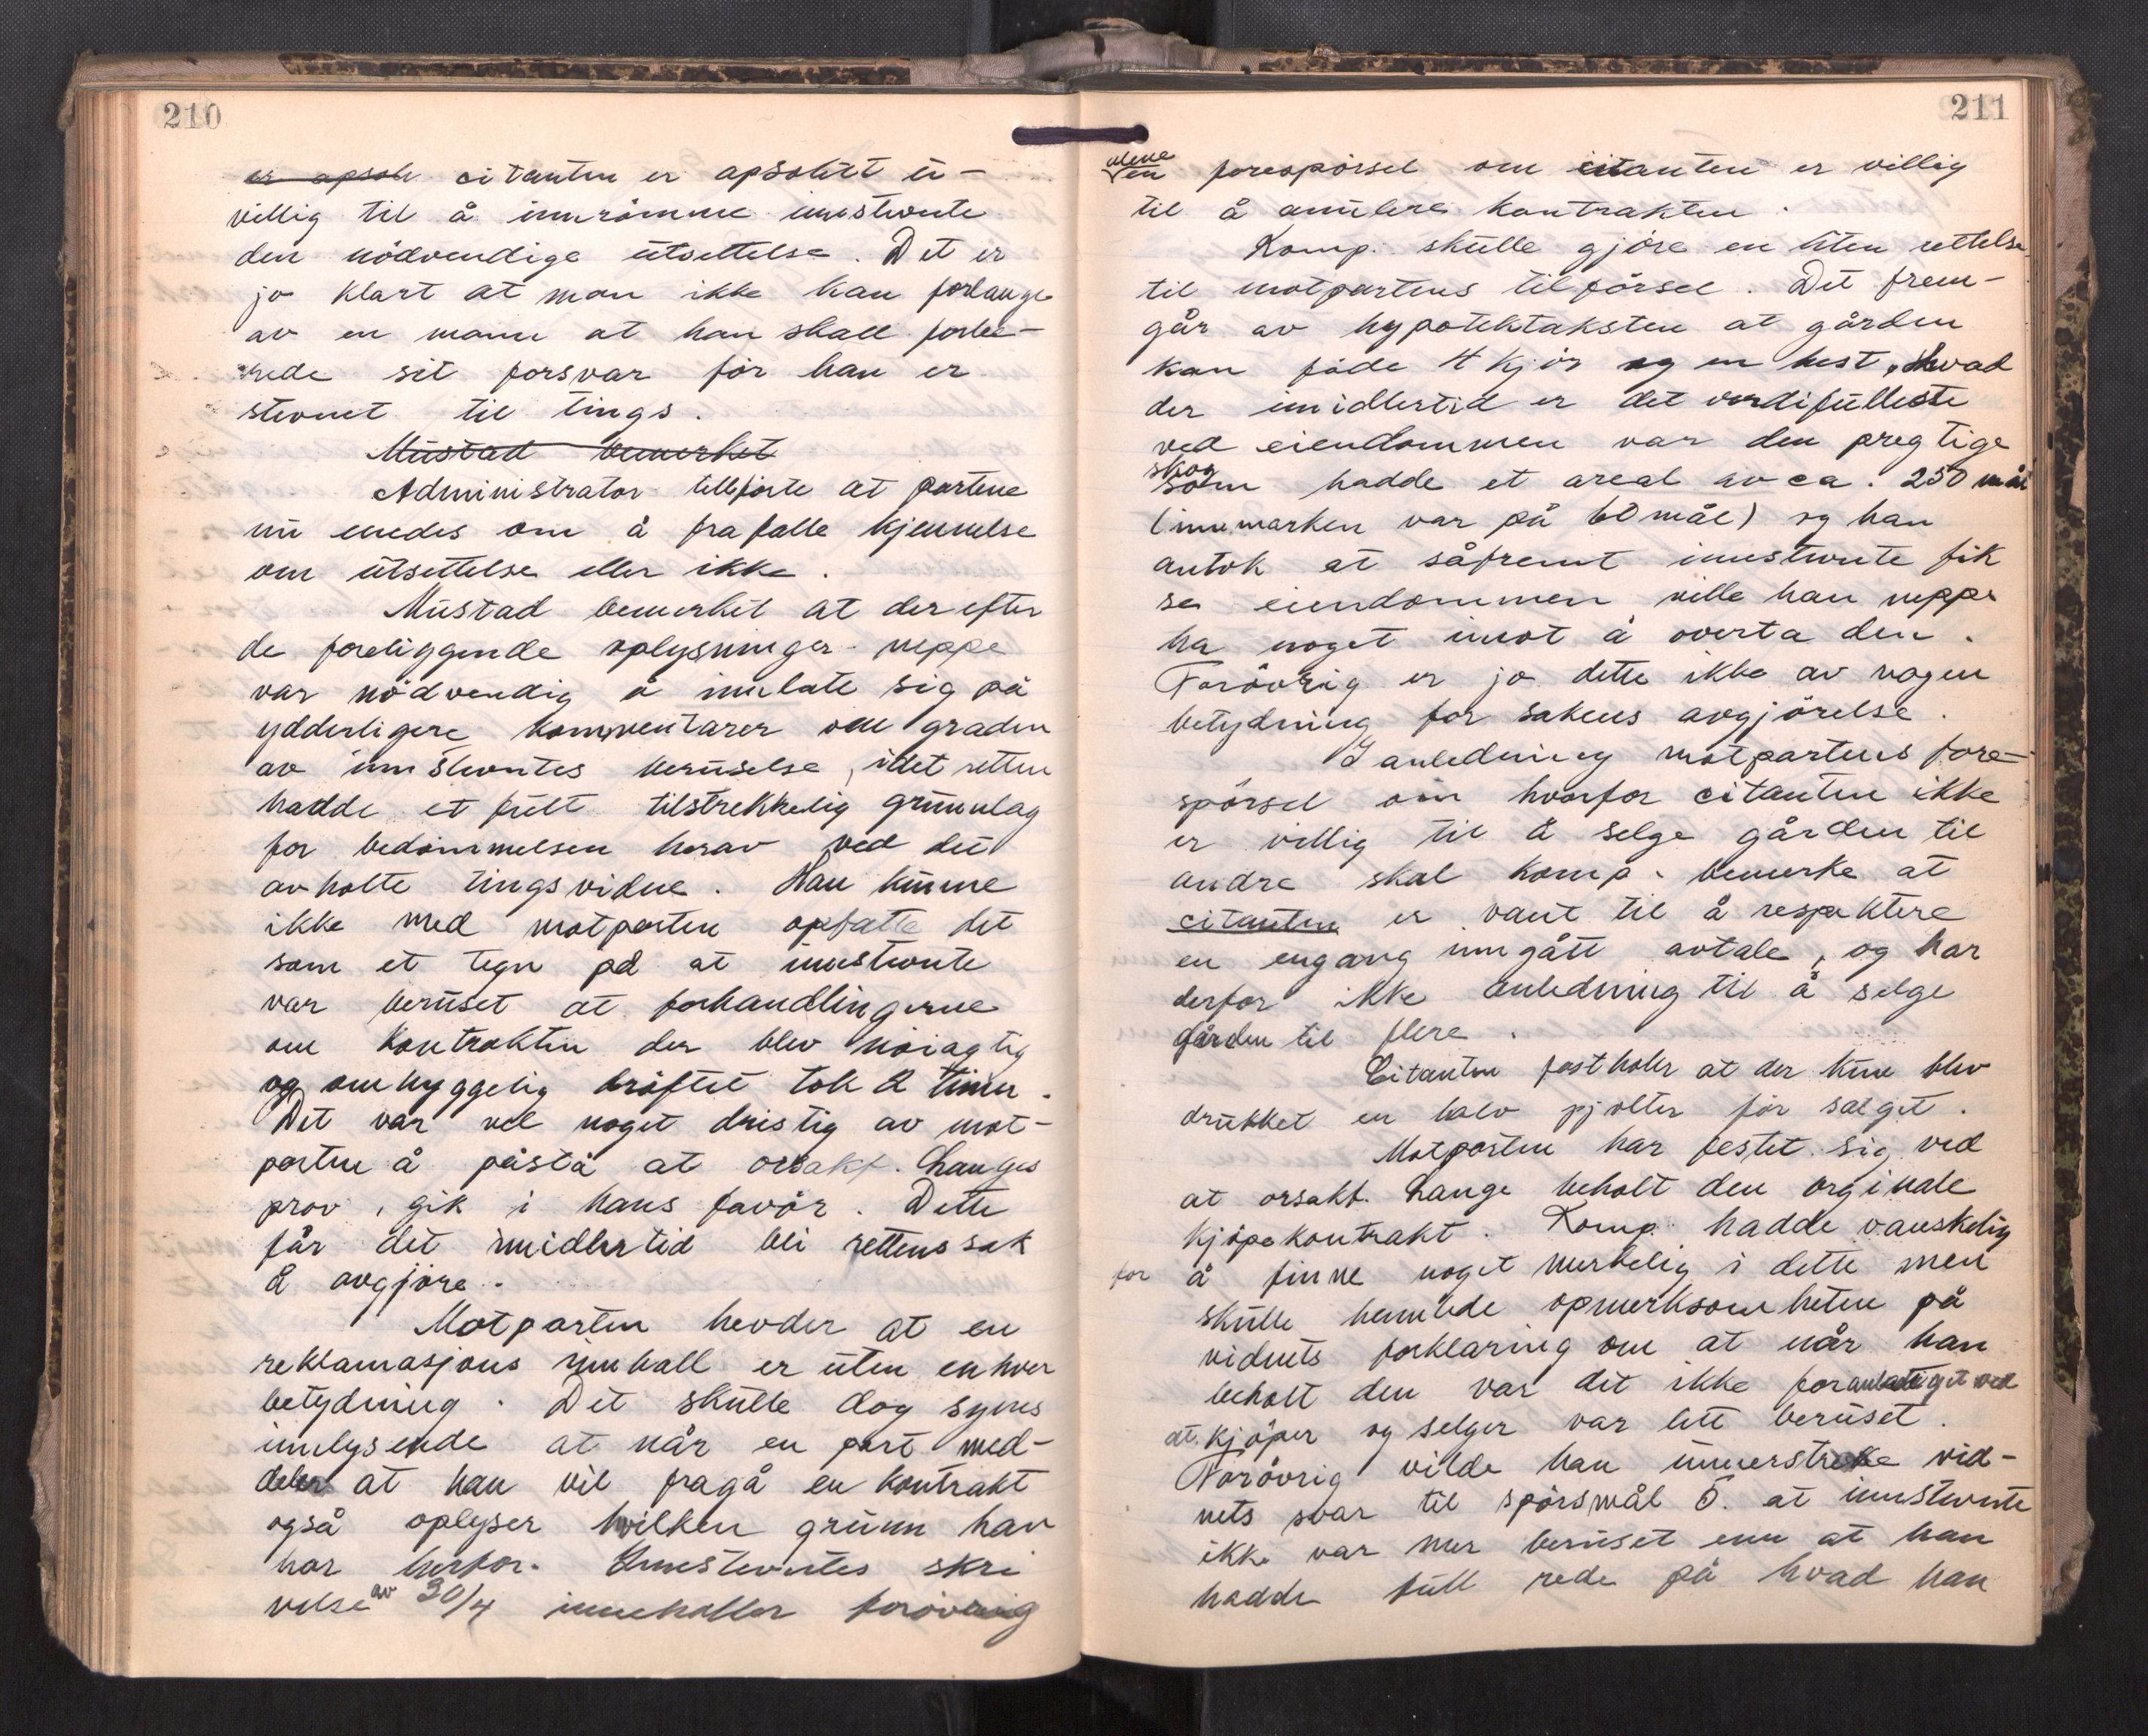 210
er apsolu citanten er apsolutt u-
villig til å innrömme innstevnte
den nödvendige utsettelse. Det er
jo klart at man ikke kan forlange
av en mann at han skall forbe-
rede sit forsvar för han er
stevnet til tings.
Mustad bemerket
Administrator tillförte at partene
nu enedes om å frafalle kjennelse
om utsettelse eller ikke.
Mustad bemerket at der efter
de foreliggende oplysninger neppe
var nödvendig å innlate sig på
ydderligere kommentarer om graden
av innstevntes beruselse, idet retten
hadde et fult tilstrekkelig grunnlag
for bedömmelsen herav ved det
avholte tingsvidne. Han kunne
ikke med motparten opfatte det
som et tegn på at innstevnte
var beruset at forhandlingerne
om kontrakten der blev nöiagtig
og omhyggelig dröftet tok 2 timer.
Det var vel noget dristig av mot-
parten å påstå at orsakf. Langes
prov, gik i hans favör. Dette
får det imidlertid bli rettens sak
å avgjöre.
Motparten hevder at en
reklamasjons innhall er uten enhver
betydning. Det skulle dog synes
innlysende at når en part med-
deler at han vil fragå en kontrakt
også oplyser hvilken grunn han
har herfor. Innstevntes skri
velse av 30/4 inneholler forövrig
211
alene
en forespörsel om citanten er villig
til å anulere kontrakten.
Komp. skulle gjöre en liten rettelse
til motpartens tilförsel. Det frem-
går av hypotektaksten at gården
kan föde 4 kjör og en hest, hvad
der imidlertid er det verdifulleste
ved eiendommen var den pregtige
skog
som hadde et areal av ca. 250 mål
(innmarken var på 60 mål) og han
antok at såfremt innstevnte fik
se eiendommen ville han neppe
ha noget imot å overta den.
Forövrig er jo dette ikke av nogen
betydning for sakens avgjörelse.
I anledning motpartens fore-
spörsel om hvorfor citanten ikke
er villig til å selge gården til
andre skal komp. bemerke at
citanten er vant til å respektere
en engang inngått avtale, og har
derfor ikke anledning til å selge
gården til flere.
Citanten fastholer at der kun blev
drukket en halv pjolter för salget.
Motparten har festet sig ved
at orsakf. Lange beholt den orginale
kjöpekontrakt. Komp. hadde vanskelig
for å finne noget merkelig i dette men
skulle henlede opmerksomheten på
vidnets forklaring om at når han
beholt den var det ikke foranlediget ved
at kjöper og selger var litt beruset.
Forövrig vilde han unnerstreke vid-
nets svar til spörsmål 5. at innstevnte
ikke var mer beruset enn at han
hadde full rede på hvad han